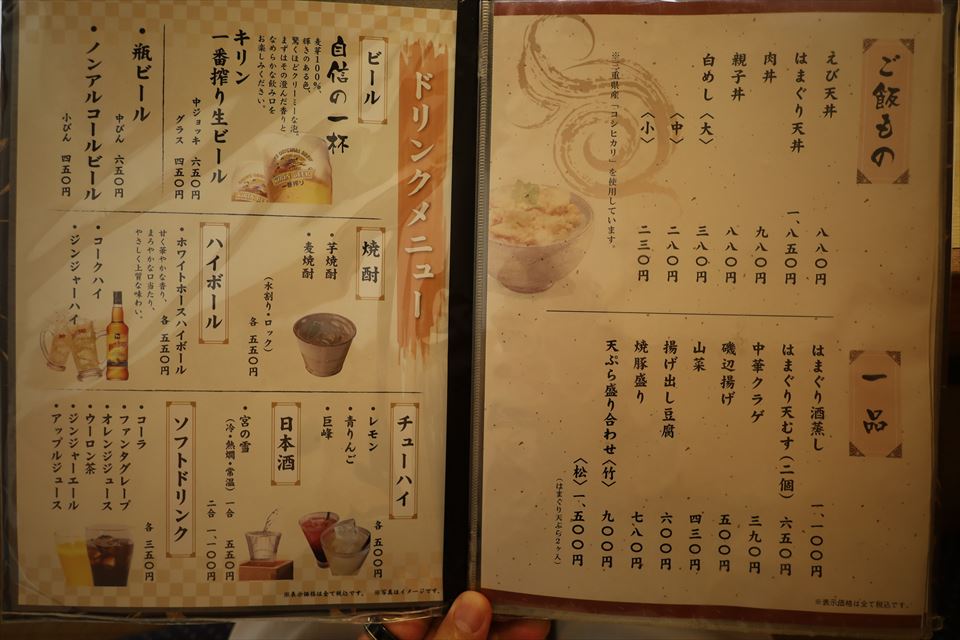 ご飯もの
えび天丼 八八〇円
はまぐり天丼 一、八五〇円
肉丼 九八〇円
親子丼 八八〇円
白めし〈大〉 三八〇円
〈中〉 二八〇円
〈小〉 二三〇円
※三重県産「コシヒカリ」を使用しています。
一品
はまぐり酒蒸し 一、一〇〇円
はまぐり天むす(二個) 六五〇円
中華クラゲ 三九〇円
磯辺揚げ 五〇〇円
山菜 四三〇円
揚げ出し豆腐 六〇〇円
焼豚盛り 七八〇円
天ぷら盛り合わせ〈竹〉 九〇〇円
〈松〉一、五〇〇円
(はまぐり天ぷら2ヶ入)
※表示価格は全て税込です。
ドリンクメニュー
ビール
自信の一杯
麦芽100%。
輝きのある色、
驚くほどクリーミーな泡。
まずはその澄んだ香りと
なめらかな飲み口を
お楽しみください。
キリン
一番搾り生ビール
中ジョッキ 六五〇円
グラス 四五〇円
・瓶ビール
中びん 六五〇円
・ノンアルコールビール
小びん 四五〇円
焼酎
・芋焼酎
・麦焼酎
(水割り・ロック)
各 五五〇円
ハイボール
・ホワイトホースハイボール
各 五五〇円
甘く華やかな香り、
まろやかな口当たり、
やさしく上質な味わい。
・コークハイ
・ジンジャーハイ
チューハイ
・レモン
・青りんご
・巨峰
各 五〇〇円
日本酒
・宮の雪
(冷・熱燗・常温) 一合 五五〇円
二合 一、一〇〇円
ソフトドリンク
・コーラ
・ファンタグレープ
・オレンジジュース
・ウーロン茶
・ジンジャーエール
・アップルジュース
各 三五〇円
※表示価格は全て税込です。 ※写真はイメージです。